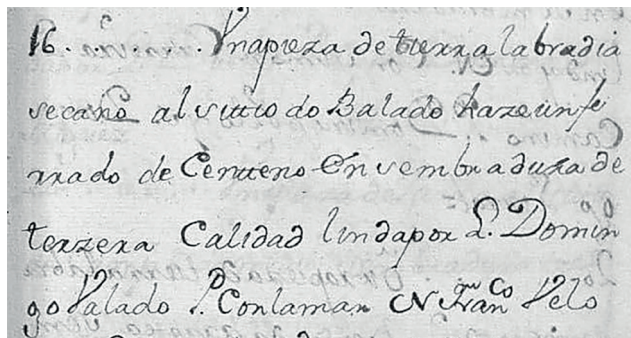 16. . . . . . Vna pieza de tierra labradia
secano al sittio do Balado haze un fe
rrado de Centteno en sembradura de
terzera Calidad linda por L. Domin
go Valado P. Con la mar N. Franco Velo